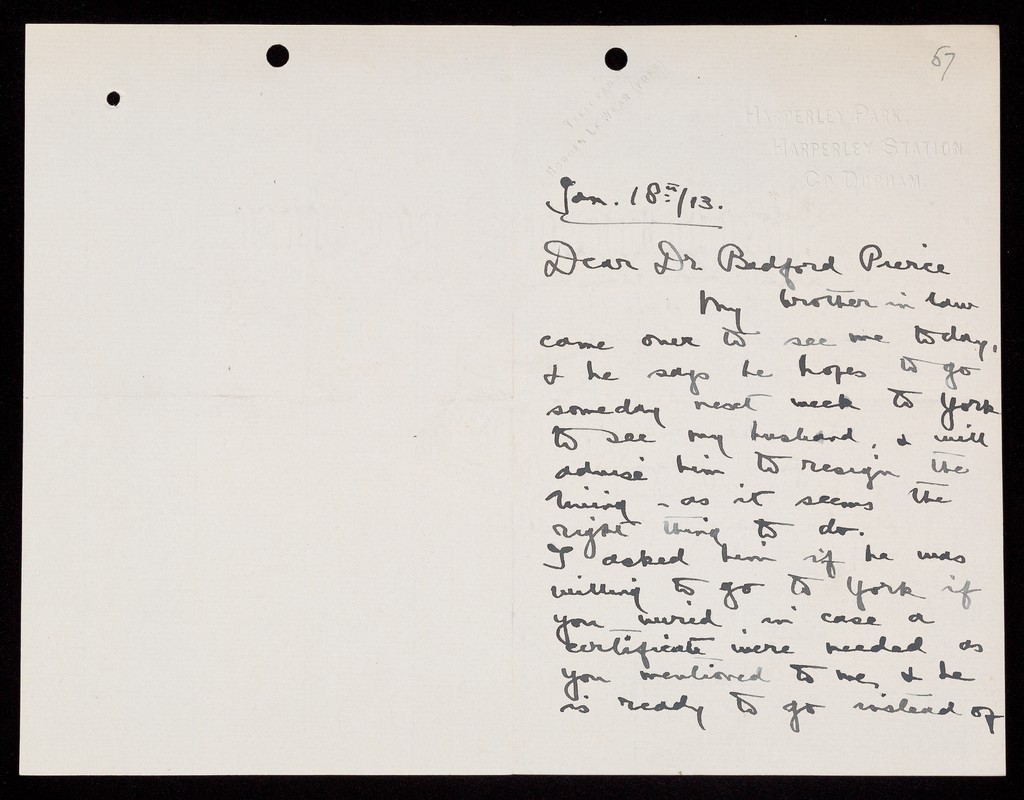 67
HARPERLEY PARK,
HARPERLEY STATION
CO DURHAM.
Jan. 18th/13.
Dear Dr Bedford Pierce
My brother in law
came over to see me today,
& he says he hopes to go
someday next week to York
to see my husband, & will
advise him to resign the
living - as it seems the
right thing to do.
I asked him if he was
willing to go to York if
you wired, in case a
certificate were needed as
you mentioned to me, & he
is ready to go instead of